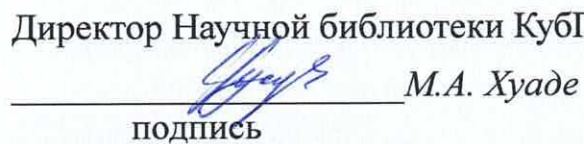 Директор Научной библиотеки Куб
М.А. Хуаде
подпись